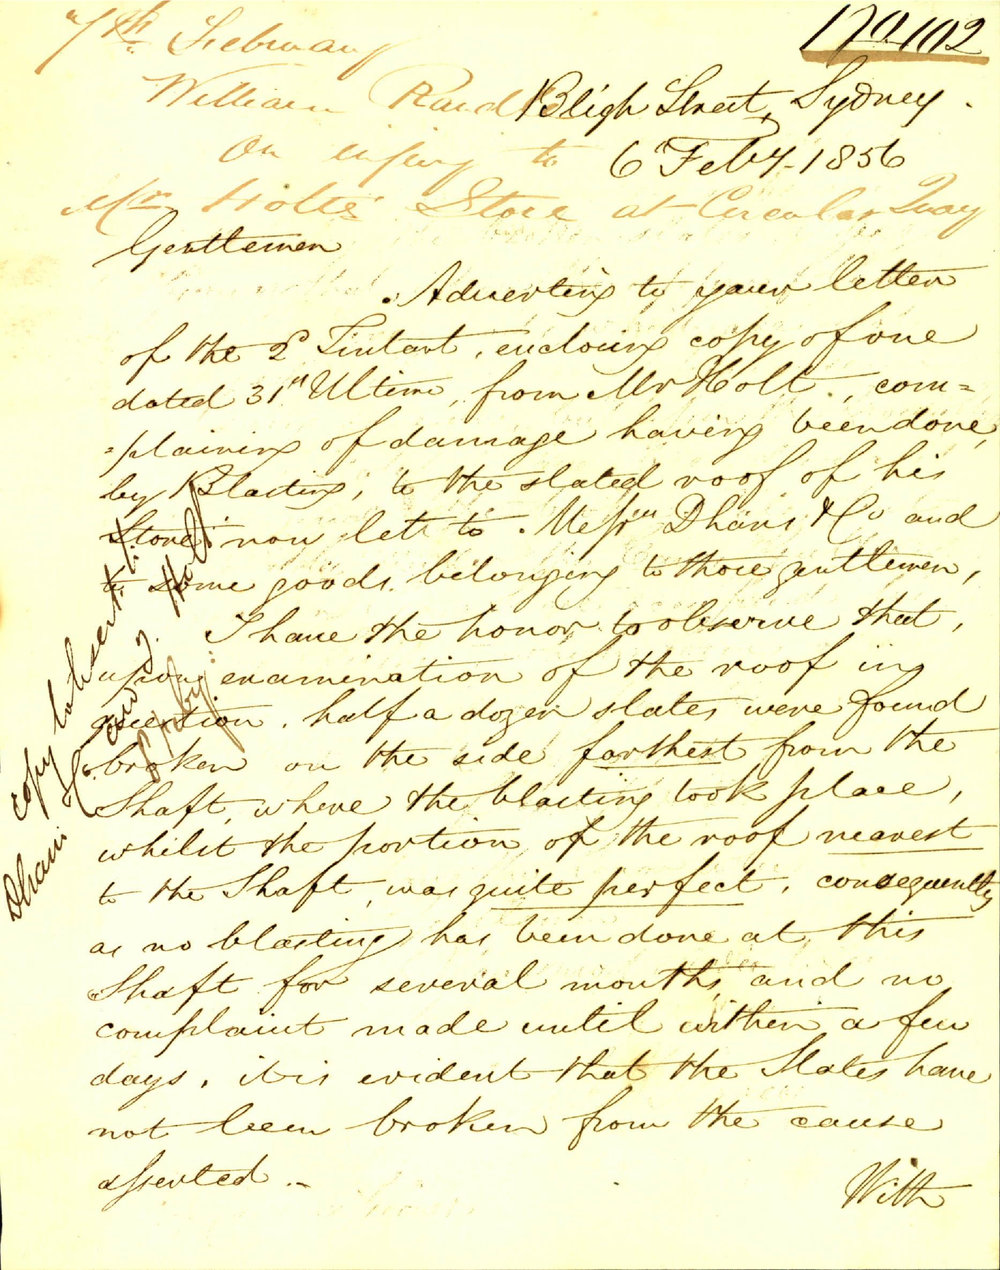 170/102
7th February
William Randle
On injury to
Mr Holts' Store at Circular Quay
Bligh Street, Sydney.
6 Feby. 1856
Gentlemen
Adverting to your letter
of the 2d Instant, enclosing copy of one
dated 31st Ultimo, from Mr Holt, com=
=plaining of damage having been done,
by Blasting, to the slated roof of his
Store now let to Messrs Dhani & Co and
to some goods belonging to those gentlemen,
I have the honor to observe that,
upon examination of the roof in
question, half a dozen slates were found
broken on the side farthest from the
Shaft, where the blasting took place,
whilst the portion of the roof nearest
to the Shaft, was quite perfect, consequently
as no blasting has been done at this
Shaft for several months, and no
complaint made until within a few
days, it is evident that the Slates have
not been broken from the cause
asserted.
With
copy to be sent to
Dhani & Co. and J. Holt
8 Feby